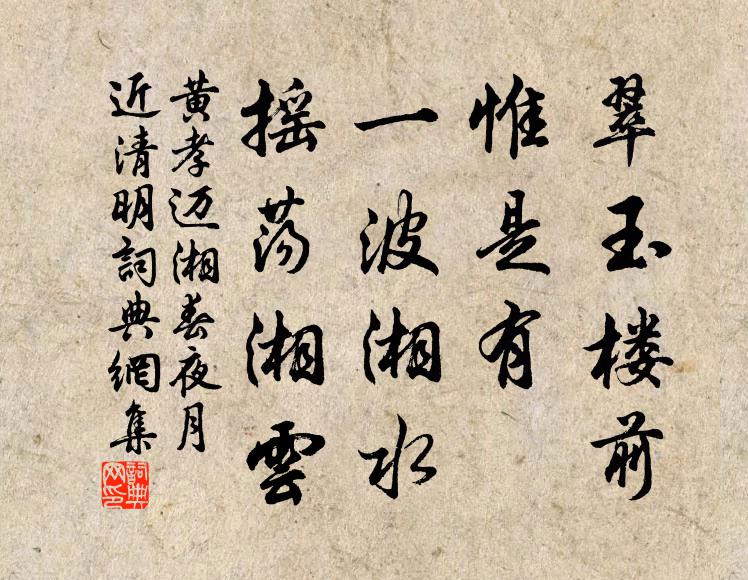 翠玉楼前
惟是有
一波湘水
摇荡湘雲
黄孝迈湘春夜月
近清明詞典網集
詞典网印